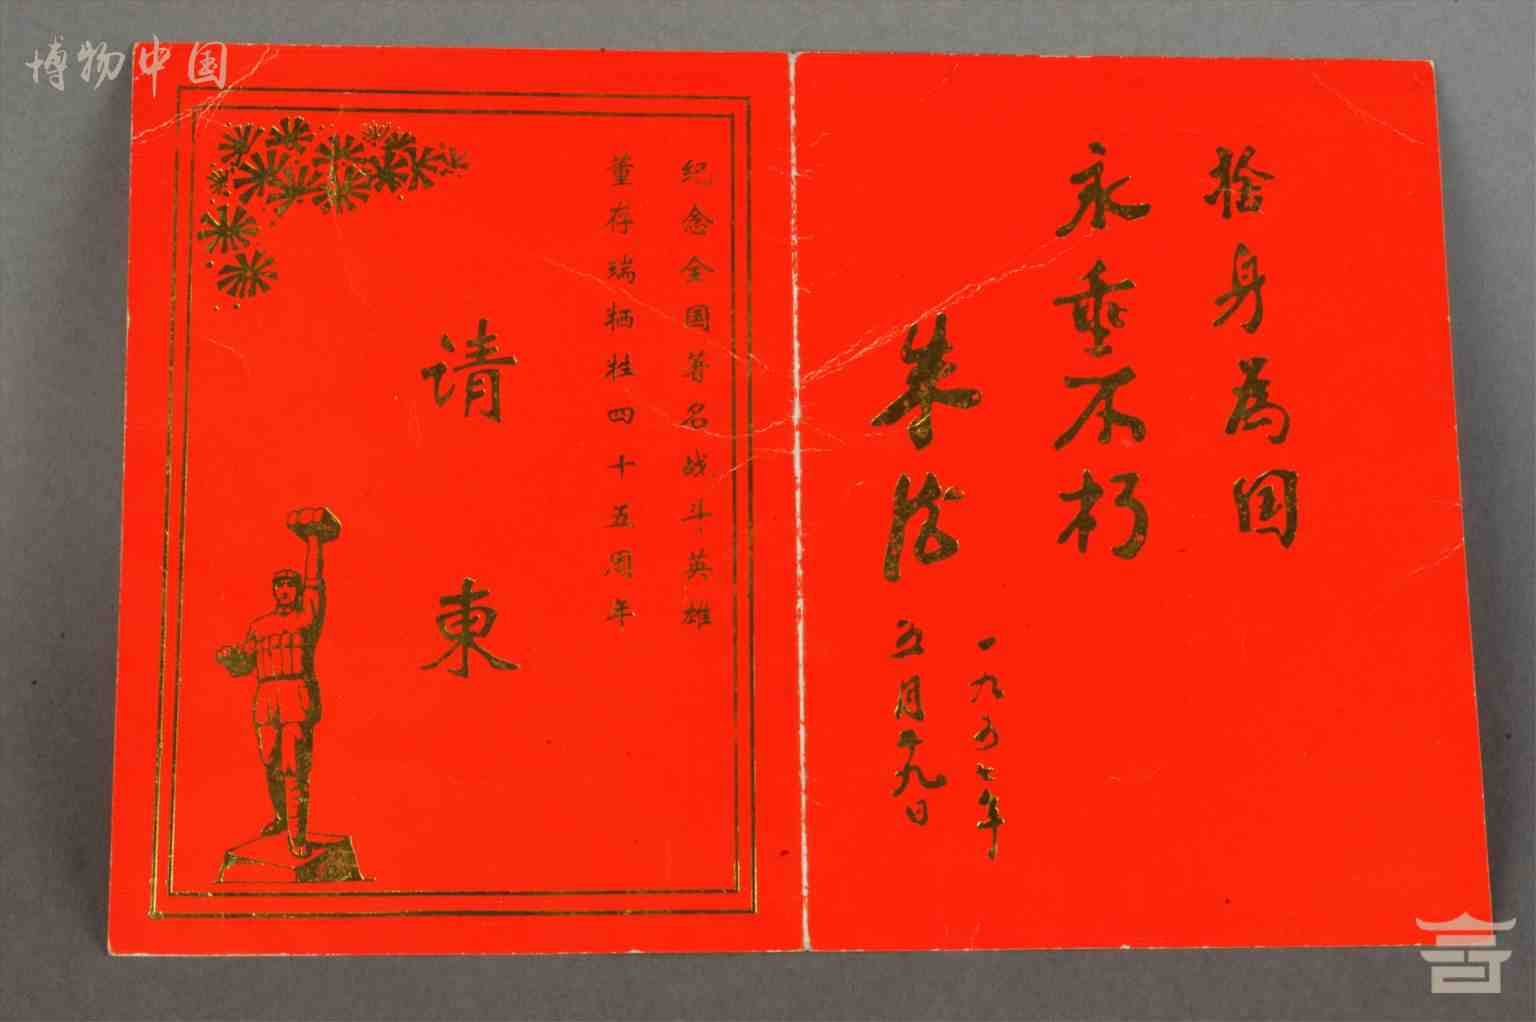 博物中国
捨身為国
永垂不朽
朱德
一九五七年
五月廿九日
纪念全国著名战斗英雄
董存瑞牺牲四十五周年
请柬